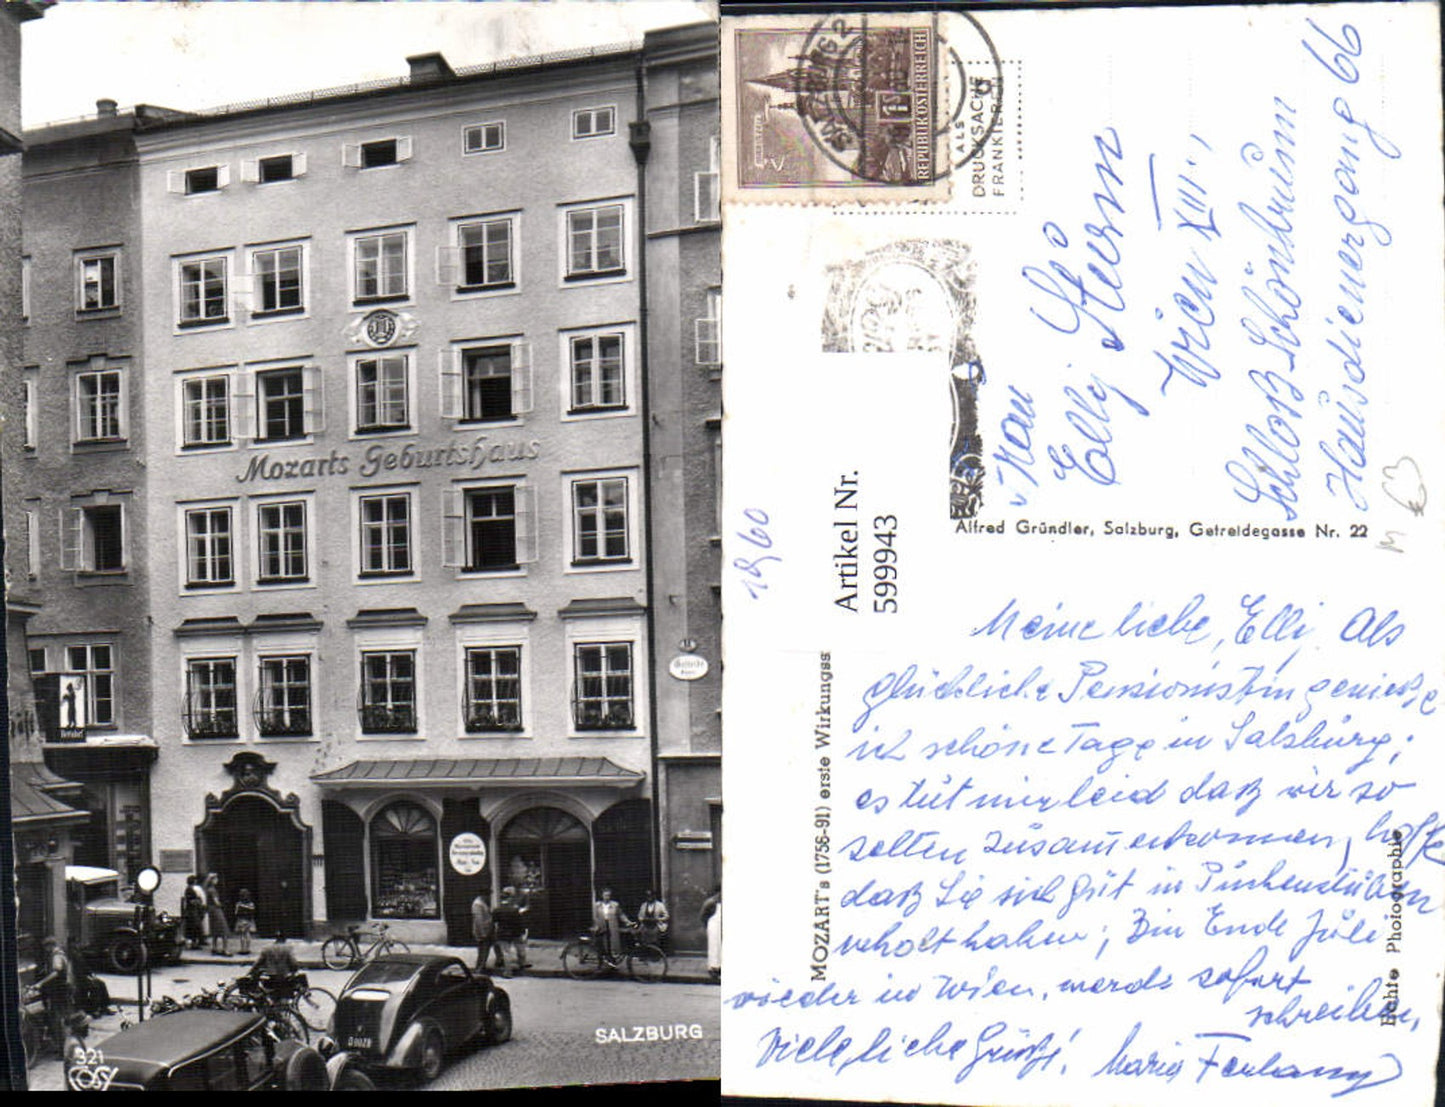 Mozarts Geburtshaus
SALZBURG
321
REPUBLIK ÖSTERREICH
SALZBURG 2
ALS
DRUCKSACHE
FRANKIEREN
Frau
Elly Sturm
Wien XIII.,
Schloß Schönbrunn
Hausdienergang 66
Alfred Gründler, Salzburg, Getreidegasse Nr. 22
Artikel Nr.
599943
MOZART's (1756-91) erste Wirkungss
Echte Photographie
Meine liebe, Elly. Als
glückliche Pensionistin genieße
ich schöne Tage in Salzburg;
es tut mir leid daß wir so
selten zusammenkommen, hoffe
daß Sie sich gut in
erholt haben; Bin Ende Juli
wieder in Wien, werde sofort
schreiben,
Viele liebe Grüße! Maria